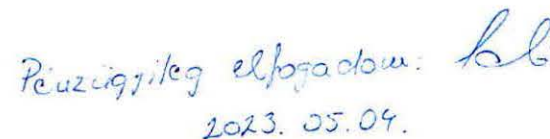 Pénzügyileg elfogadom:
2023. 05. 04.